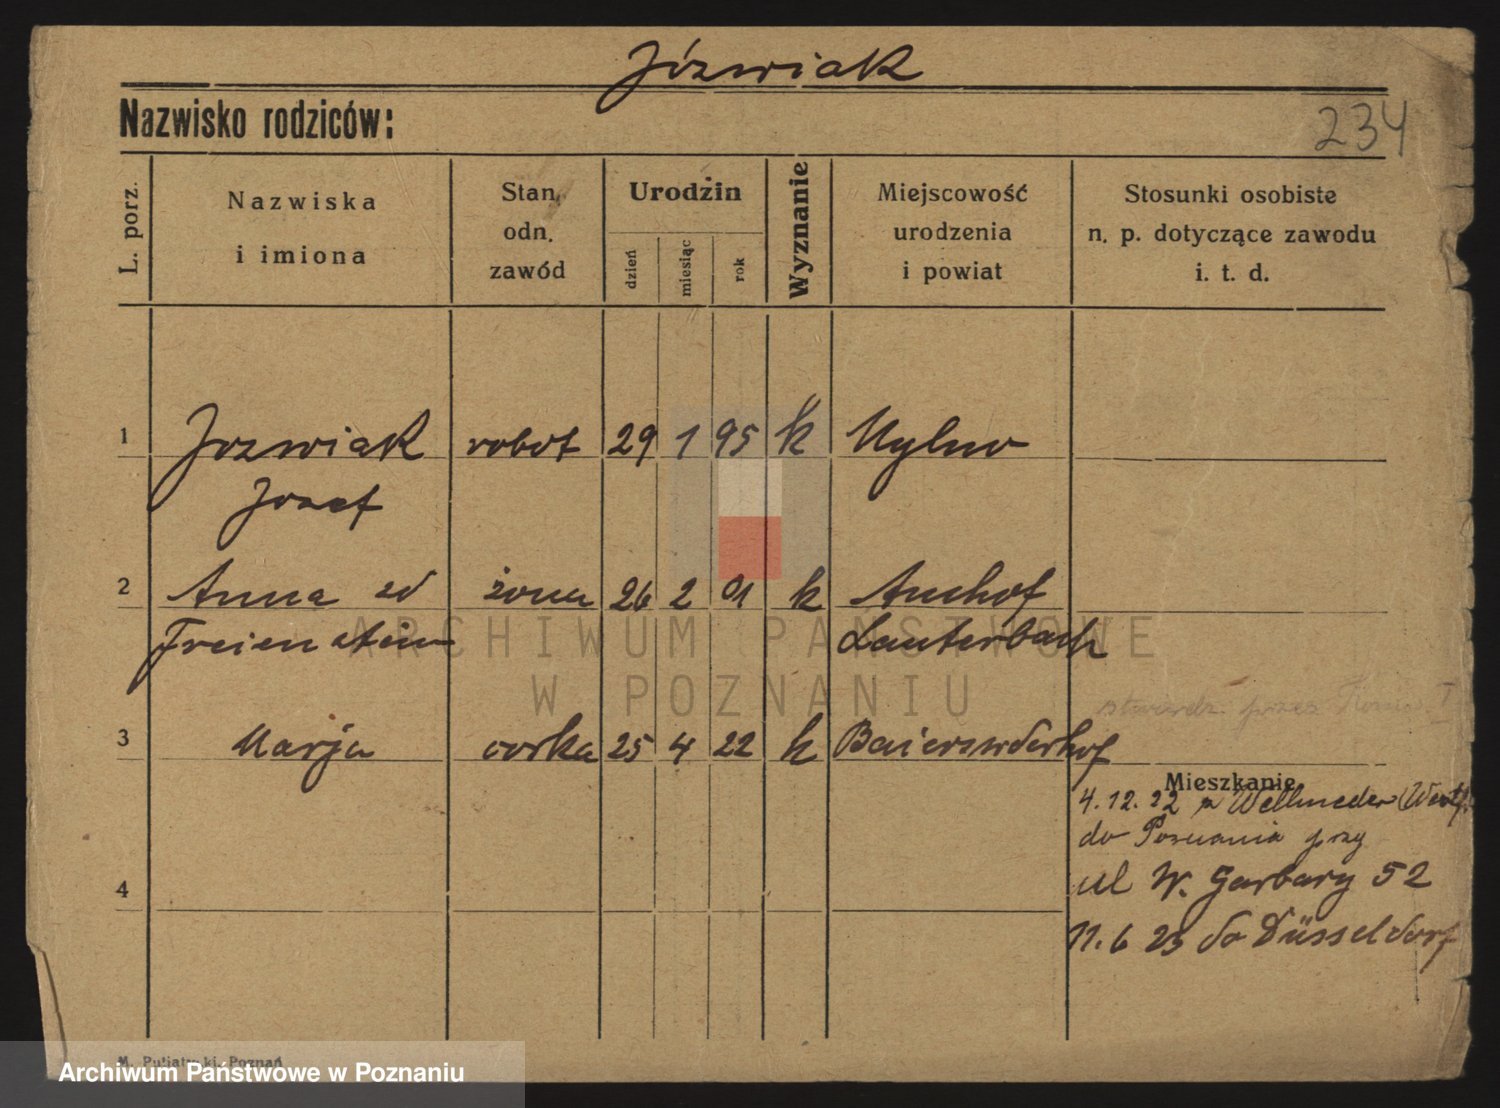 Józwiak
Nazwisko rodziców:
234
L. porz.
Nazwiska
i imiona
Stan,
odn.
zawód
Urodzin
dzień
miesiąc
rok
Wyznanie
Miejscowość
urodzenia
i powiat
Stosunki osobiste
n. p. dotyczące zawodu
i. t. d.
1 Jozwiak robot 29 1 95 k Mylno
Jozef
2 Anna zd żona 26 2 01 k Auehof
Freienstein Lauterbach
ARCHIWUM PAŃSTWOWE
W POZNANIU
stwierdz. przez I
3 Marja corka 25 4 22 k
Mieszkanie
4.12.22 z (Westf.
do Poznania przy
4
ul W. Garbary 52
11.6 23 do Düsseldorf
Poznań
Archiwum Państwowe w Poznaniu